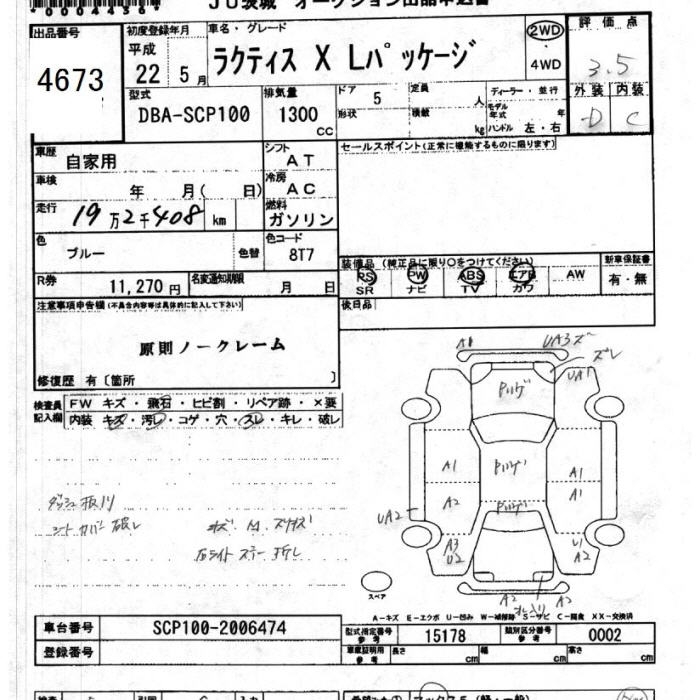 *00044504*
JU茨城 オークション出品申込書
出品番号
4673
初度登録年月
平成
22 5月
車名・グレード
ラクティス X Lパッケージ
2WD
4WD
評価点
3.5
外装 内装
D C
型式
DBA-SCP100
排気量
1300
cc
ドア
5
定員
人
形状
積載
kg
ディーラー・並行
モデル年式 年
ハンドル 左・右
車歴
自家用
シフト
AT
セールスポイント(正常に機能するものに限ります)
車検
年 月( 日)
冷房
AC
走行
19万2千408 km
燃料
ガソリン
色
ブルー
色替
色コード
8T7
装備品 (純正品に限り○をつけてください)
PS PW ABS エアB AW
SR ナビ TV カワ
新車保証書
有・無
R券
11,270円
名変通知期限
月 日
後日品
注意事項申告欄(不具合内容等は具体的に記入して下さい)
原則ノークレーム
修復歴 有〔箇所 〕
検査員記入欄
FW キズ・飛石・ヒビ割・リペア跡・×要
内装 キズ・汚レ・コゲ・穴・スレ・キレ・破レ
A1
UA3 ズレ
UA1
A1
A2
A1
A1
UA2
A3
U2
U1
A2
A2
A2
ダッシュ
シートカバー破レ
右ライトステー折レ
スペア
A-キズ E-エクボ U-凹み W-補修跡 S-サビ C-腐食 XX-交換済
車台番号
SCP100-2006474
登録番号
型式指定番号参考
15178
類別区分番号参考
0002
車庫証明用参考
長さ cm
幅 cm
高さ cm